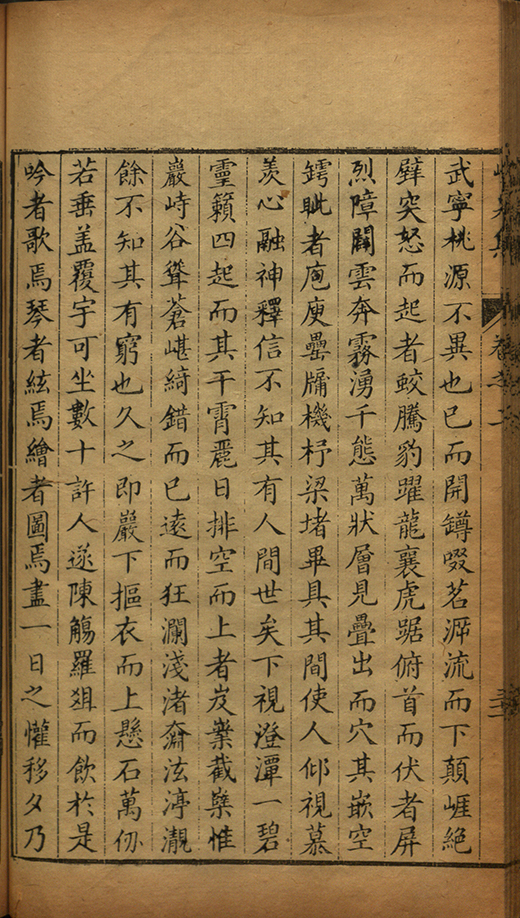 武寧桃源不異也已而開罇啜茗泝流而下顛崕絶
壁突怒而起者蛟騰豹躍龍襄虎踞俯首而伏者屏
烈障闢雲奔霧湧千態萬狀層見疊出而穴其嵌空
鍔眦者庖庾罍牖機杼梁堵畢具其間使人仰視慕
羡心融神釋信不知其有人間世矣下視澄潭一碧
靈籟四起而其干霄麗日排空而上者岌嶪截㠔惟
巖峙谷聳蒼嵁綺錯而已遠而狂瀾淺渚奫泫渟瀙
餘不知其有窮也久之即巖下摳衣而上懸石萬仞
若垂盖覆宇可坐數十許人遂陳觴羅俎而飲於是
吟者歌焉琴者絃焉繪者圖焉盡一日之懽移夕乃
集
卷之二